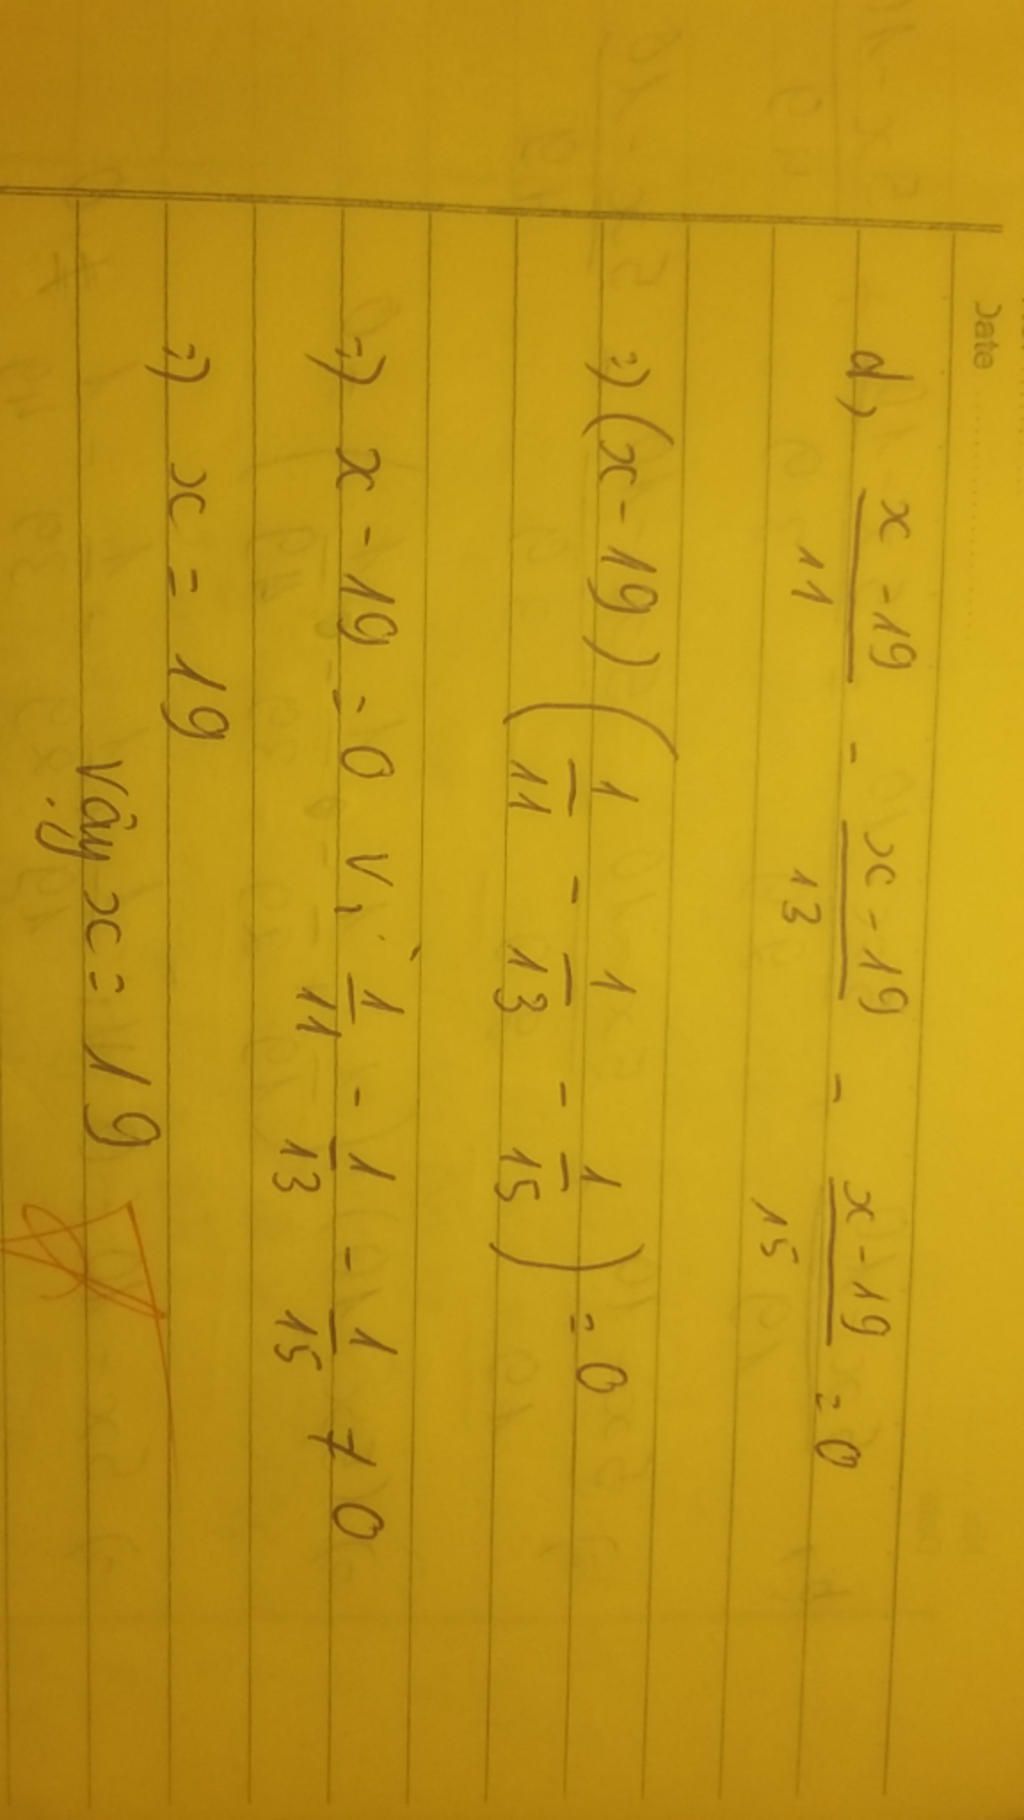 Date
d, x-19/11 - x-19/13 - x-19/15 = 0
=) (x-19) (1/11 - 1/13 - 1/15) = 0
=) x - 19 = 0 Vì 1/11 - 1/13 - 1/15 ≠ 0
=) x = 19
Vậy x = 19